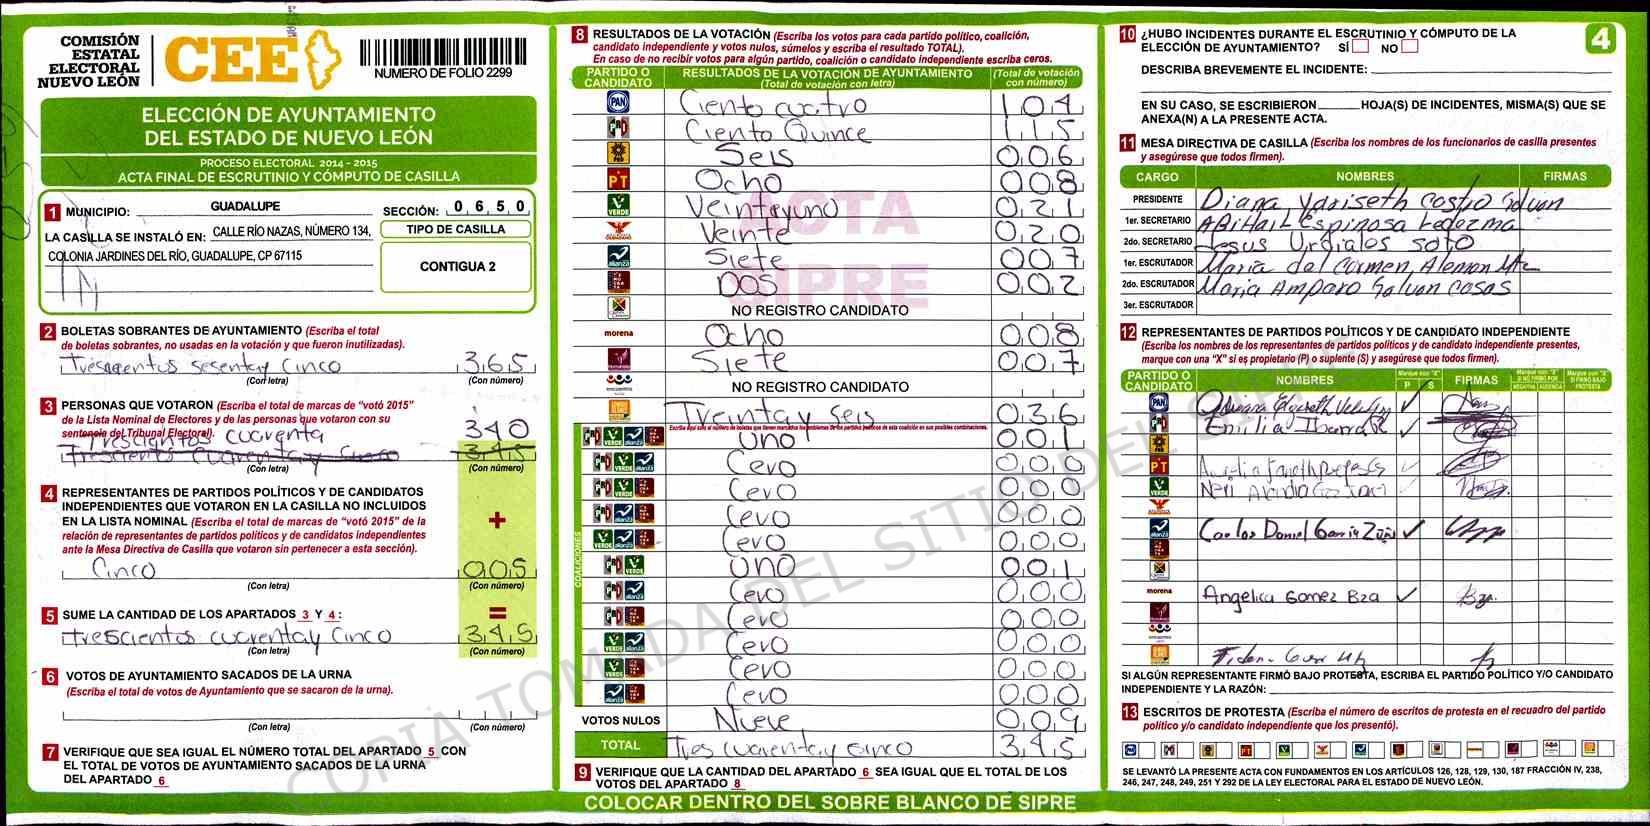 COMISIÓN
ESTATAL
ELECTORAL
NUEVO LEÓN
CEE
NUMERO DE FOLIO 2299
ELECCIÓN DE AYUNTAMIENTO
DEL ESTADO DE NUEVO LEÓN
PROCESO ELECTORAL 2014 - 2015
ACTA FINAL DE ESCRUTINIO Y CÓMPUTO DE CASILLA
1 MUNICIPIO: GUADALUPE SECCIÓN: 0 6 5 0
LA CASILLA SE INSTALÓ EN: CALLE RÍO NAZAS, NÚMERO 134,
COLONIA JARDINES DEL RÍO, GUADALUPE, CP 67115
TIPO DE CASILLA
CONTIGUA 2
2 BOLETAS SOBRANTES DE AYUNTAMIENTO (Escriba el total
de boletas sobrantes, no usadas en la votación y que fueron inutilizadas).
Trescientos sesentay Cinco 365
(Con letra) (Con número)
3 PERSONAS QUE VOTARON (Escriba el total de marcas de “votó 2015”
de la Lista Nominal de Electores y de las personas que votaron con su
sentencia del Tribunal Electoral).
Trescientos cuarenta 340
Trescientos cuarentay cinco 345
(Con letra) (Con número)
4 REPRESENTANTES DE PARTIDOS POLÍTICOS Y DE CANDIDATOS
INDEPENDIENTES QUE VOTARON EN LA CASILLA NO INCLUIDOS
EN LA LISTA NOMINAL (Escriba el total de marcas de “votó 2015” de la
relación de representantes de partidos políticos y de candidatos independientes
ante la Mesa Directiva de Casilla que votaron sin pertenecer a esta sección).
+
Cinco 005
(Con letra) (Con número)
5 SUME LA CANTIDAD DE LOS APARTADOS 3 Y 4 : =
Trescientos cuarentay Cinco 345
(Con letra) (Con número)
6 VOTOS DE AYUNTAMIENTO SACADOS DE LA URNA
(Escriba el total de votos de Ayuntamiento que se sacaron de la urna).
(Con letra) (Con número)
7 VERIFIQUE QUE SEA IGUAL EL NÚMERO TOTAL DEL APARTADO 5 CON
EL TOTAL DE VOTOS DE AYUNTAMIENTO SACADOS DE LA URNA
DEL APARTADO 6
8 RESULTADOS DE LA VOTACIÓN (Escriba los votos para cada partido político, coalición,
candidato independiente y votos nulos, súmelos y escriba el resultado TOTAL).
En caso de no recibir votos para algún partido, coalición o candidato independiente escriba ceros.
PARTIDO O CANDIDATO RESULTADOS DE LA VOTACIÓN DE AYUNTAMIENTO (Total de votación con letra) (Total de votación con número)
PAN Ciento cuatro 104
PRI Ciento Quince 115
PRD Seis 006
PT Ocho 008
VERDE Veintayuno 021
Veinte 020
alianza Siete 007
DOS 002
NO REGISTRO CANDIDATO
morena Ocho 008
Siete 007
encuentro NO REGISTRO CANDIDATO
Treintay Seis 036
COALICIONES
Uno 001
Cero 000
Cero 000
Cero 000
Cero 000
Uno 001
Cero 000
Cero 000
Cero 000
Cero 000
Cero 000
VOTOS NULOS Nueve 009
TOTAL Tres cuarentay cinco 345
9 VERIFIQUE QUE LA CANTIDAD DEL APARTADO 6 SEA IGUAL QUE EL TOTAL DE LOS
VOTOS DEL APARTADO 8
ACTA
SIPRE
COLOCAR DENTRO DEL SOBRE BLANCO DE SIPRE
10 ¿HUBO INCIDENTES DURANTE EL ESCRUTINIO Y CÓMPUTO DE LA
ELECCIÓN DE AYUNTAMIENTO? SÍ NO
4
DESCRIBA BREVEMENTE EL INCIDENTE:
EN SU CASO, SE ESCRIBIERON HOJA(S) DE INCIDENTES, MISMA(S) QUE SE
ANEXA(N) A LA PRESENTE ACTA.
11 MESA DIRECTIVA DE CASILLA (Escriba los nombres de los funcionarios de casilla presentes
y asegúrese que todos firmen).
CARGO NOMBRES FIRMAS
PRESIDENTE Diana Yariseth Castro Galvan
1er. SECRETARIO ABiHaiL Espinosa Ledezma
2do. SECRETARIO Jesus Urdiales soto
1er. ESCRUTADOR Maria del Carmen Aleman Mtz
2do. ESCRUTADOR Maria Amparo Galvan Casas
3er. ESCRUTADOR
12 REPRESENTANTES DE PARTIDOS POLÍTICOS Y DE CANDIDATO INDEPENDIENTE
(Escriba los nombres de los representantes de partidos políticos y de candidato independiente presentes,
marque con una “X” si es propietario (P) o suplente (S) y asegúrese que todos firmen).
PARTIDO O CANDIDATO NOMBRES P S FIRMAS
PAN
Emilia Ibarra
PT
VERDE
alianza Carlos Daniel Garcia Zuñi
morena Angelica Gomez Bza Bza.
SI ALGÚN REPRESENTANTE FIRMÓ BAJO PROTESTA, ESCRIBA EL PARTIDO POLÍTICO Y/O CANDIDATO
INDEPENDIENTE Y LA RAZÓN:
13 ESCRITOS DE PROTESTA (Escriba el número de escritos de protesta en el recuadro del partido
político y/o candidato independiente que los presentó).
SE LEVANTÓ LA PRESENTE ACTA CON FUNDAMENTOS EN LOS ARTÍCULOS 126, 128, 129, 130, 187 FRACCIÓN IV, 238,
246, 247, 248, 249, 251 Y 292 DE LA LEY ELECTORAL PARA EL ESTADO DE NUEVO LEÓN.
COPIA TOMADA DEL SITIO DEL SIPRE